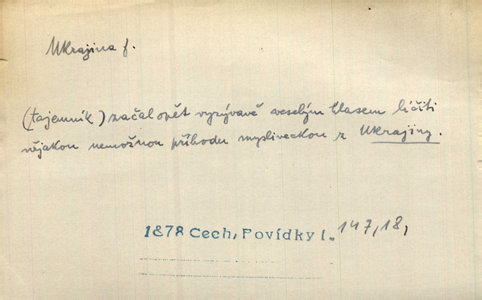 Ukrajina f.
(tajemník) začal opět vyzývavě veselým hlasem líčiti
nějakou nemožnou příhodu mysliveckou z Ukrajiny.
1878 Čech, Povídky I. 147, 18,